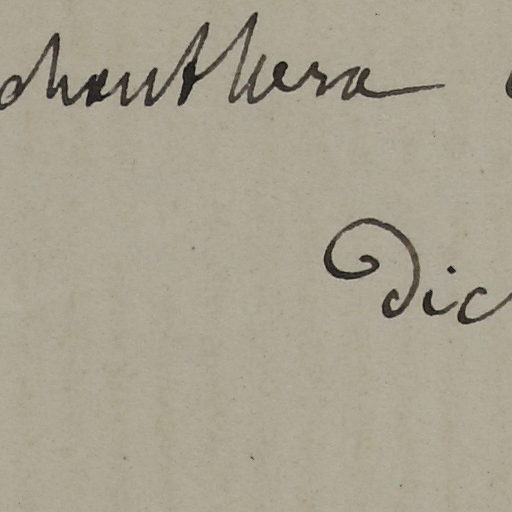 chanthera
Dic